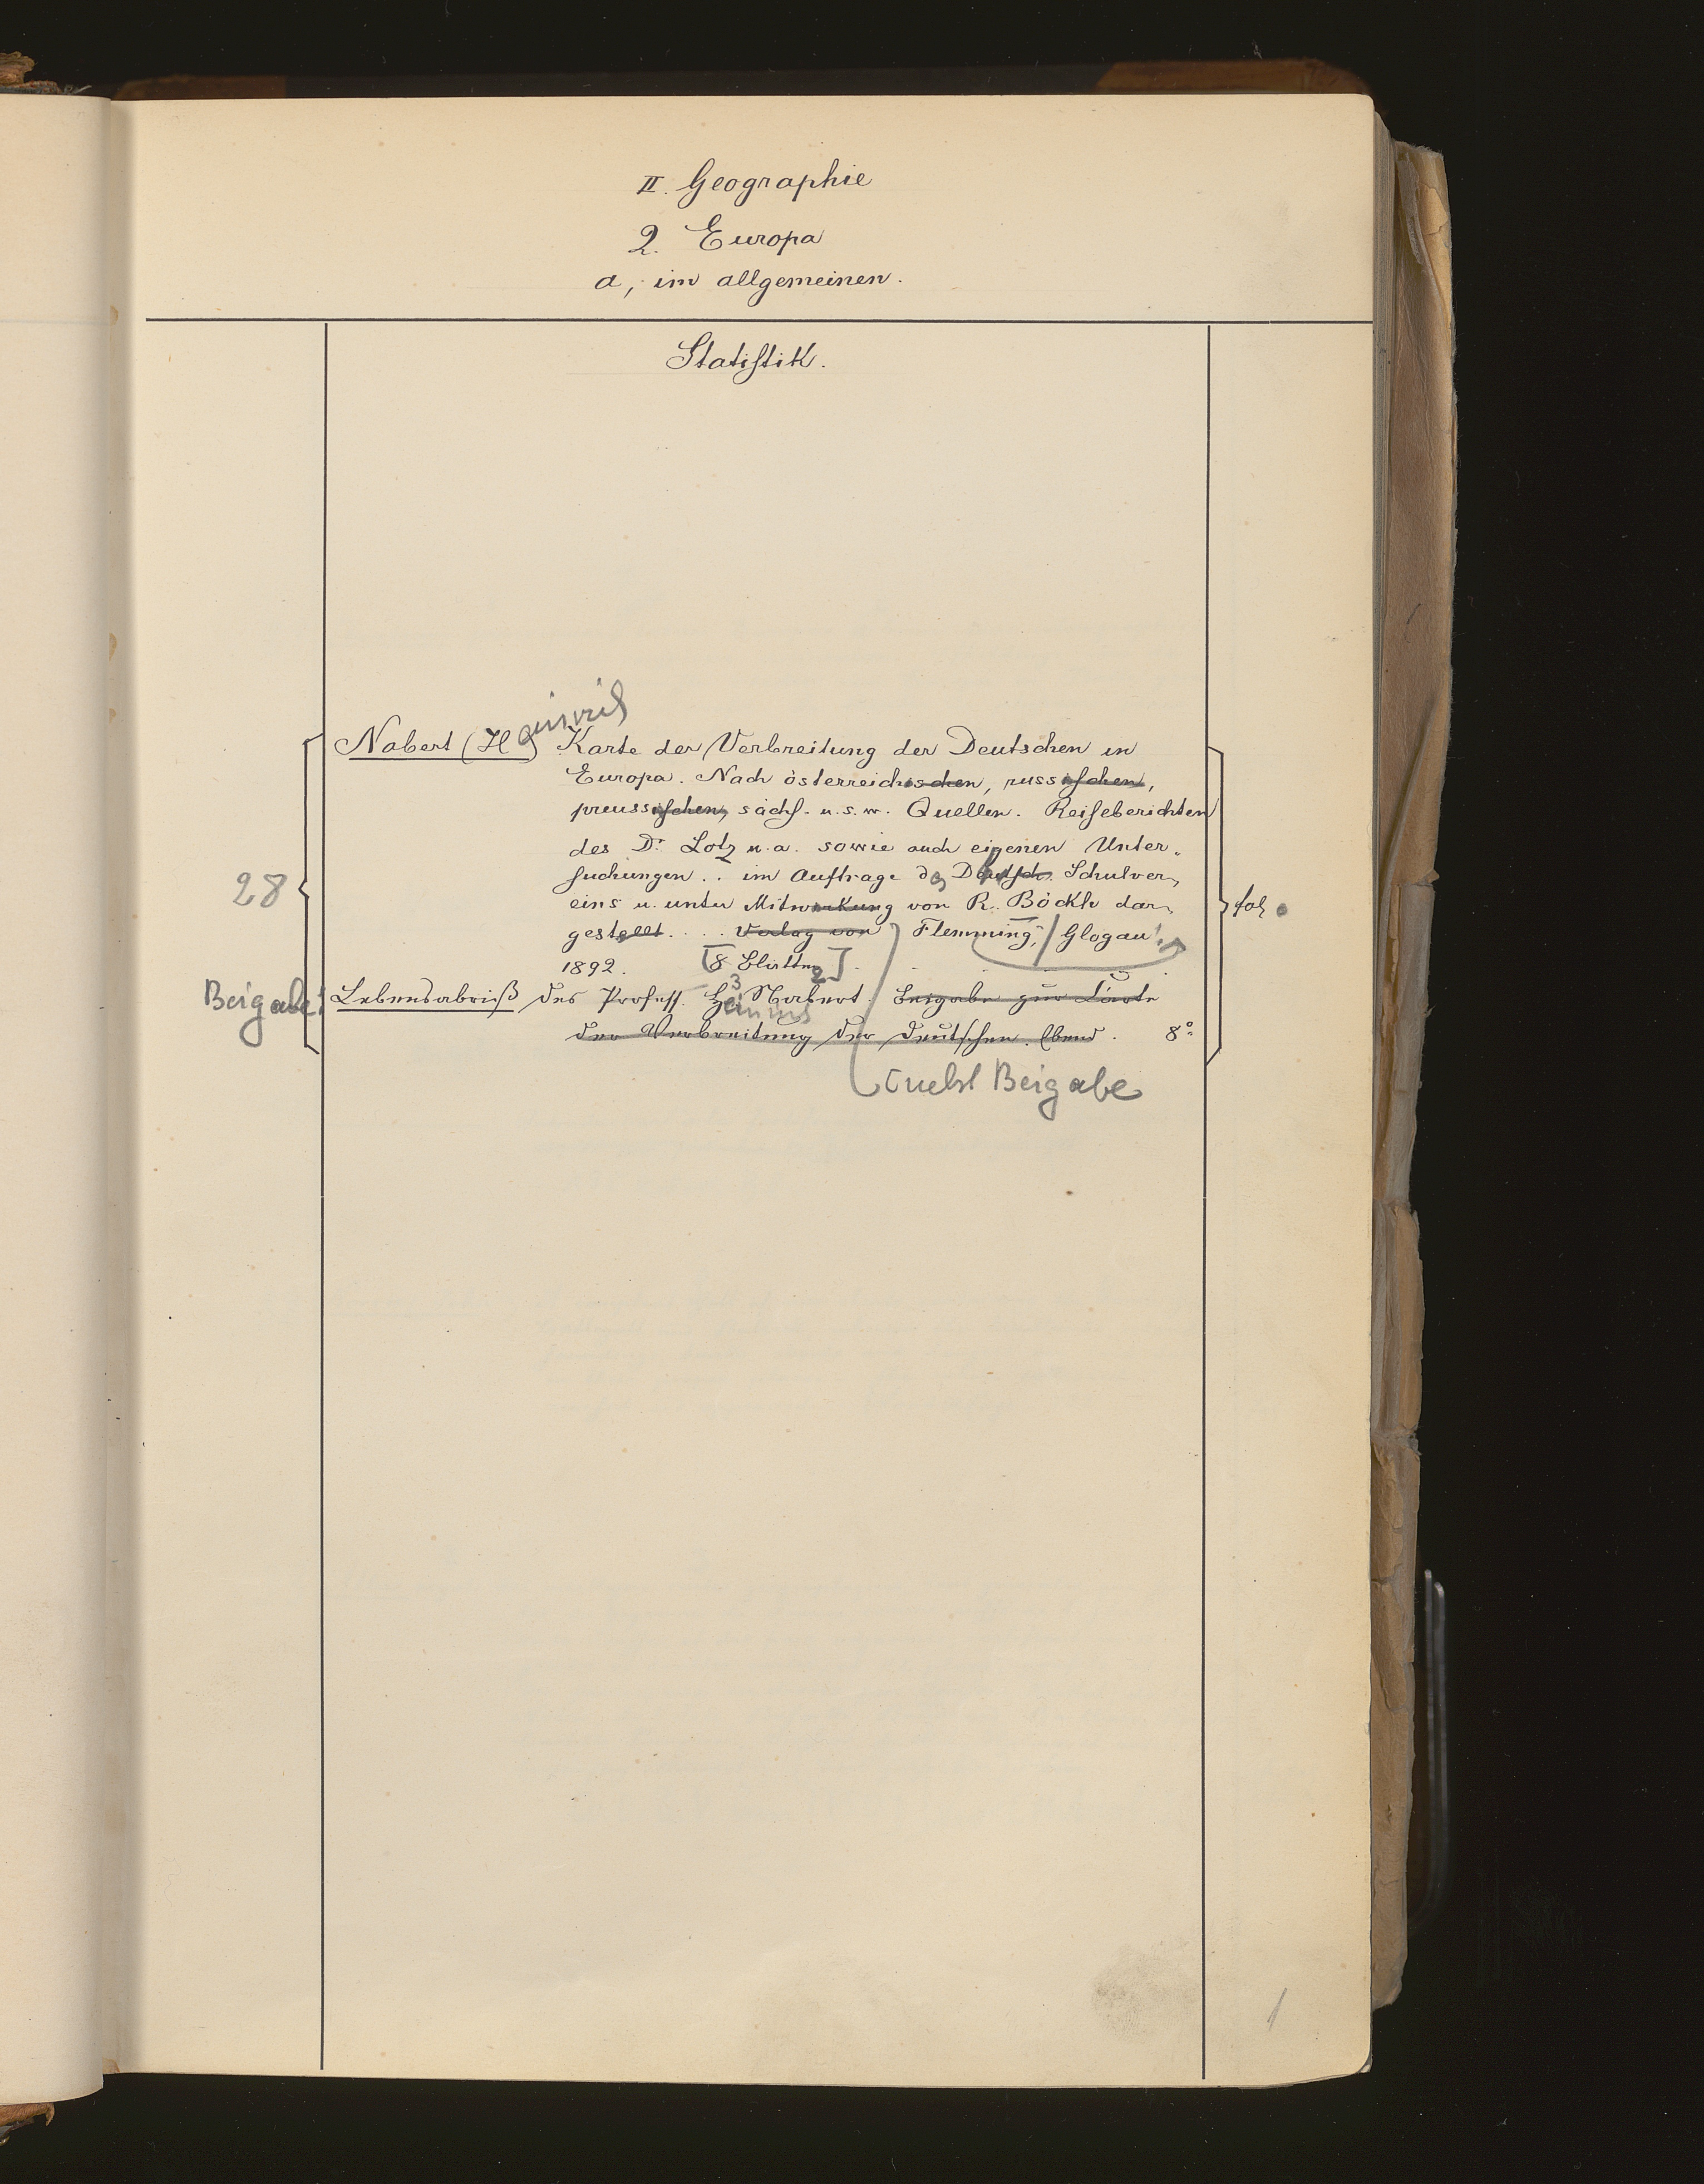 II. Geographie
2. Europa
a, im allgemeinen.
Statistik.
Heinrich
Nabert (H.) Karte der Verbreitung der Deutschen in
Europa. Nach österreichischen, russischen,
preussischen, sächs. u.s.w. Quellen. Reiseberichten
des Dr. Lotz u.a. sowie auch eigenen Unter-
28
suchungen .. im Auftrage des Deutsch. Schulver-
eins u. unter Mitwirkung von R. Böckh dar-
fol.
gestellt. ... Verlag von Flemming, Glogau
1892. [8 Blätter]
Beigabe: Lebensabriß des Profess. H. Nabert. Beigabe zur Karte
der Verbreitung der Deutschen. Ebend. 8°
[nebst Beigabe
1